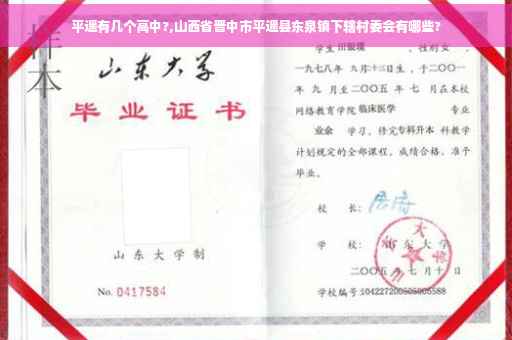 平遥有几个高中?,山西省晋中市平遥县东泉镇下辖村委会有哪些?
样本
山东大学
毕业证书
山东大学制
No. 0417584
学生
性别女,
一九七八年 九月十三日生,于二〇〇一
年 九 月至二〇〇五 年 七 月在本校
网络教育学院 临床医学 专业
业余 学习,修完专科升本科教学
计划规定的全部课程,成绩合格,准予
毕业。
校 长:
学 校: 山东大学
二〇〇五 年 七 月 十 日
学校编号:104227200505005588